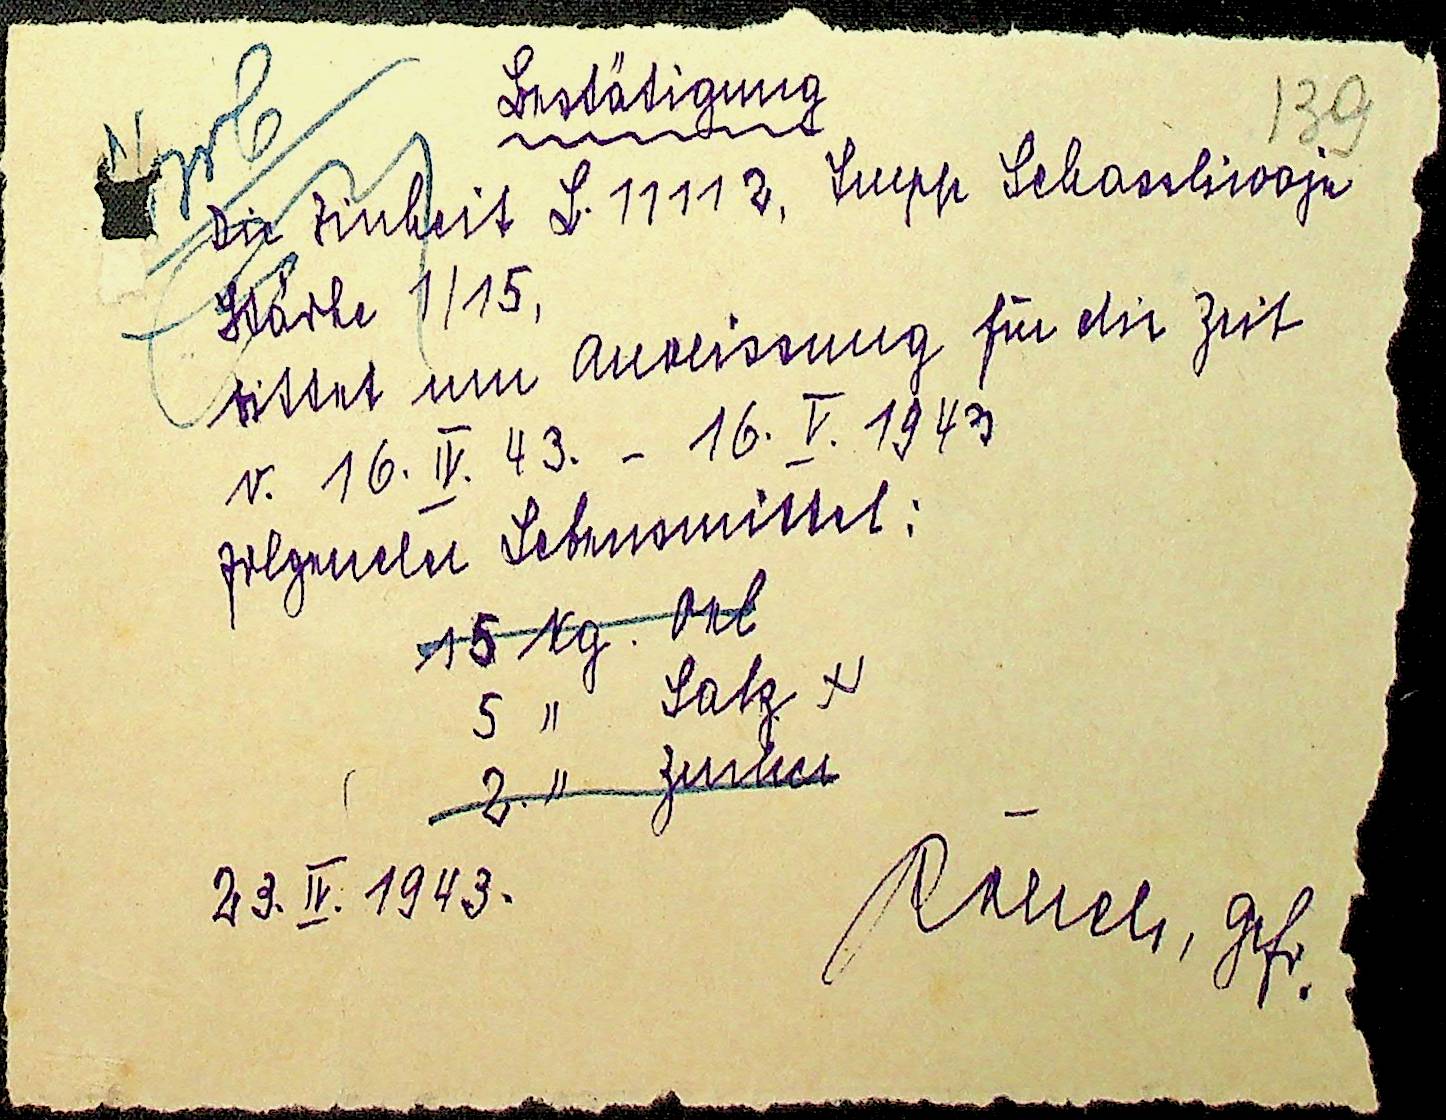 Bestätigung
139
Die Einheit L. 11112,
Stärke 1/15,
bittet um Anweissung für die Zeit
v. 16. IV. 43. - 16. V. 1943
folgender Lebensmittel:
15 Kg. Oel
5 " Salz x
2. " Zucker
23. IV. 1943.
Gefr.